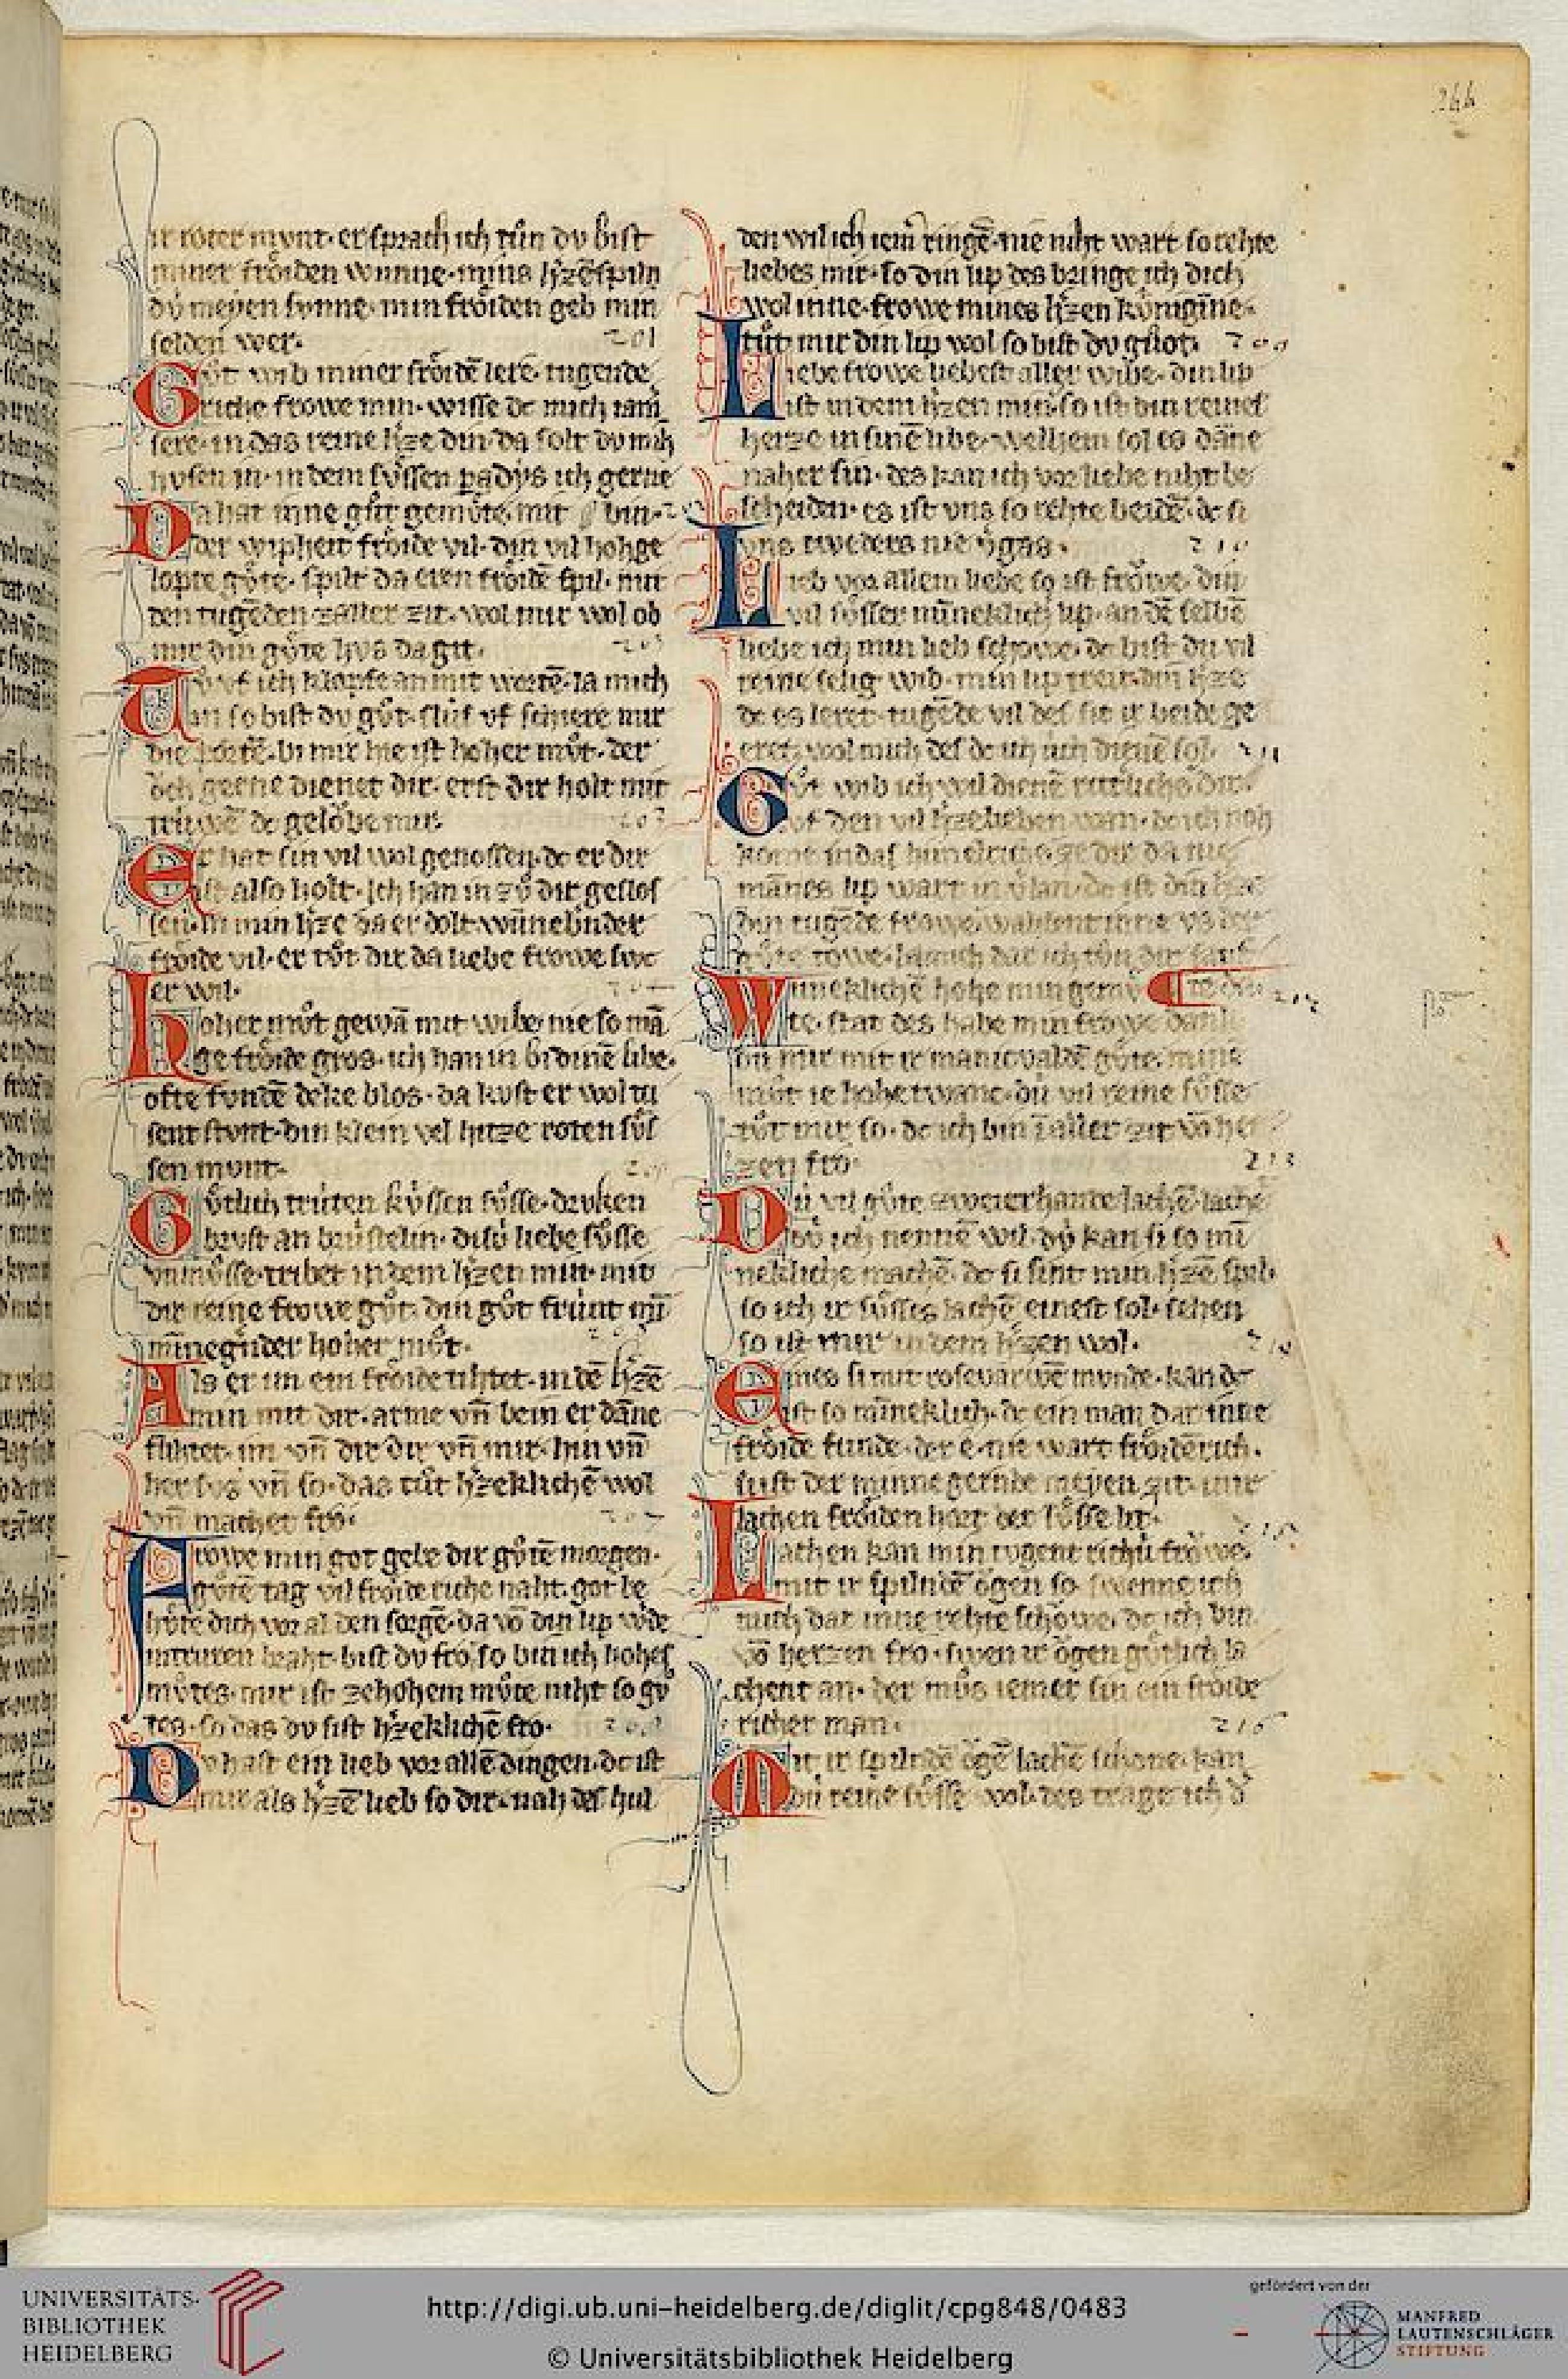 244
ir roter mvnt· er sprach ich tuͦn dv bist
miner froͤiden wunne· mins hˀzē spiln
dv meyen sunne· min froͤiden geb min
selden wer· 201
Guͦt wib miner froͤidē lere· tugende
riche frowe min· wisse dc mich iam̄
sere· in das reine hˀze din· da solt dv mih
husen in· in dem suͤssen padys ich gerne
Da hat inne guͦt gemuͤte· mit bin·
der wipheit froͤide vil· din vil hohge
lopte guͤte· spilt da eren froͤidē spil· mit
den tugēden zaller zit· wol mir wol ob
mir din guͤte hvs da git·
ich klopfe an mit wortē· la mich
in so bist dv guͦt· slús vf schiere mir
die portē· bi mir hie ist hoher muͦt· der
dch gerne dienet dir· erst dir holt mit
trúwē dc geloͮbe mir· 203
Er hat sin vil wol genossen· dc er dir
ist also holt· ich han in zuͦ dir geslos
sen· in min hˀze da er dolt· wūneb̄nder
froͤide vil· er tuͦt dir da liebe frowe swc
er wil·
Hoher muͦt gewā mit wibe· nie so mā
ge froͤide gros· ich han in bi dinē libe·
ofte fundē deke blos· da kust er wol tu
sent stvnt· din klein vel hitze roten suͤs
sen mvnt·
Guͤtlich trúten kússen suͤsse· druken
brust an brústelin· disú liebe suͤsse
vnmuͤsse· tribet in dem hˀzen min· mit
dir reine frowe guͦt· din guͦt frúnt mī
minegˀnder hoher muͦt·
Als er im ein froͤide tihtet· in dē hˀzē
min mit dir· arme vn̄ bein er dāne
flihtet· im vn̄ dir dir vn̄ mir· hin vn̄
her sus vn̄ so· das tuͦt hˀzeklichē wol
vn̄ machet fro· 207
Frowe min got gebe dir guͦtē morgen·
guͦtē tag vil froͤide riche naht· got be
huͤte dich vor al den sorgē· da vō din lip wˀde
intruren braht· bist dv fro so bin ich hohes
muͦtes· mir ist ze hohem muͦte niht so guͦ
tes· so das dv sist hˀzeklichē fro·
Dv hast ein lieb vor allē dingen· dc ist
mir als hˀzē lieb so dir· nah des hul
den wil ich iemˀ ringē· nie niht wart so rehte
liebes mir· so din lip des bringe ich dich
wol inne· frowe mines hˀzen kúnigīne·
tuͦt mir din lip wol so bist dv gͦt
Liebe frowe liebest aller wibe· din lip
ist in dem hˀzen min· so ist din reines
herze in sinē libe· welhem sol es dāne
naher sin· des kan ich vor liebe niht be
scheiden· es ist vns so rehte beidē· dc si
vns tweders nie vˀgas· 210
Lieb vor allem liebe so ist frowe· din
vil suͤsser mīneklich lip· an dē selbē
liebe ich min lieb schowe· dc bist du vil
reine selig wib· min lip din hˀze
dc es leret· tugēde vil des sit ir beide ge
eret· wol mich des dc ich úch dienē sol· 211
Guͦt wib ich wil dienē ritterliche dir·
vf den vil hˀzelieben wan· dc ich noh
kome in das himelriche ze dir da nie
mānes lip wart in vˀlan· dc ist din hˀze
din tugēde frowe
guͤte frowe· la mich dar ich tuͦn dir
Wūneklichē hohe min gemuͤ ¶
te· stat des habe min frowe dank
dú mir mit ir manicvaldē guͤte· mine
muͦt ie hohe twanc· dú vil reine suͤsse
tuͦt mir so· dc ich bin ī aller zit vō her
zen fro· 213
Dú vil guͦte zweierhande lachē· lache
dú ich nennē wil· dú kan si so mī
nekliche machē· dc si sint min hˀzē spil·
so ich ir suͤsses lachē einest sol· sehen
so ist mir in dem hˀzen wol·
Eines si mit rosevarwē mvnde· kan dc
ist so mīneklich· dc ein man dar inne
froͤide funde· der e nie wart froͤidē rich·
sust der minne gernde meyen zit· mir
lachen froͤiden hort der suͤsse lit·
Lachen kan min tugent richú frowe·
mit ir spilndē oͮgen so· swenne ich
mich dar inne rehte schowe· dc ich bin
vō herzen fro· swen ir oͮgen guͤtlich la
chent an· der muͦs iemer sin ein froͤide
richer man· 216
Mit ir spilndē oͮgē lachē schone· kan
dú reine suͤsse wol· des trage ich dˀ
UNIVERSITÄTS-
BIBLIOTHEK
HEIDELBERG
http://digi.ub.uni-heidelberg.de/diglit/cpg848/0483
© Universitätsbibliothek Heidelberg
gefördert von der
MANFRED
LAUTENSCHLÄGER
STIFTUNG